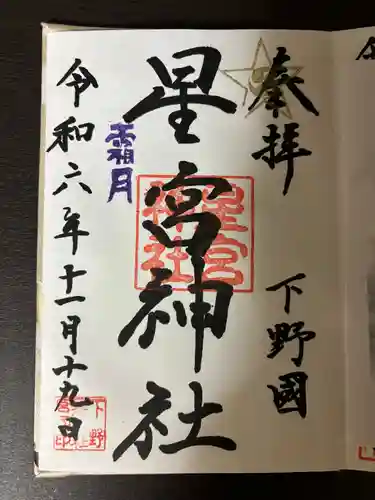 奉拝
下野國
星宮神社
星宮神社
霜月
令和六年十一月十九日